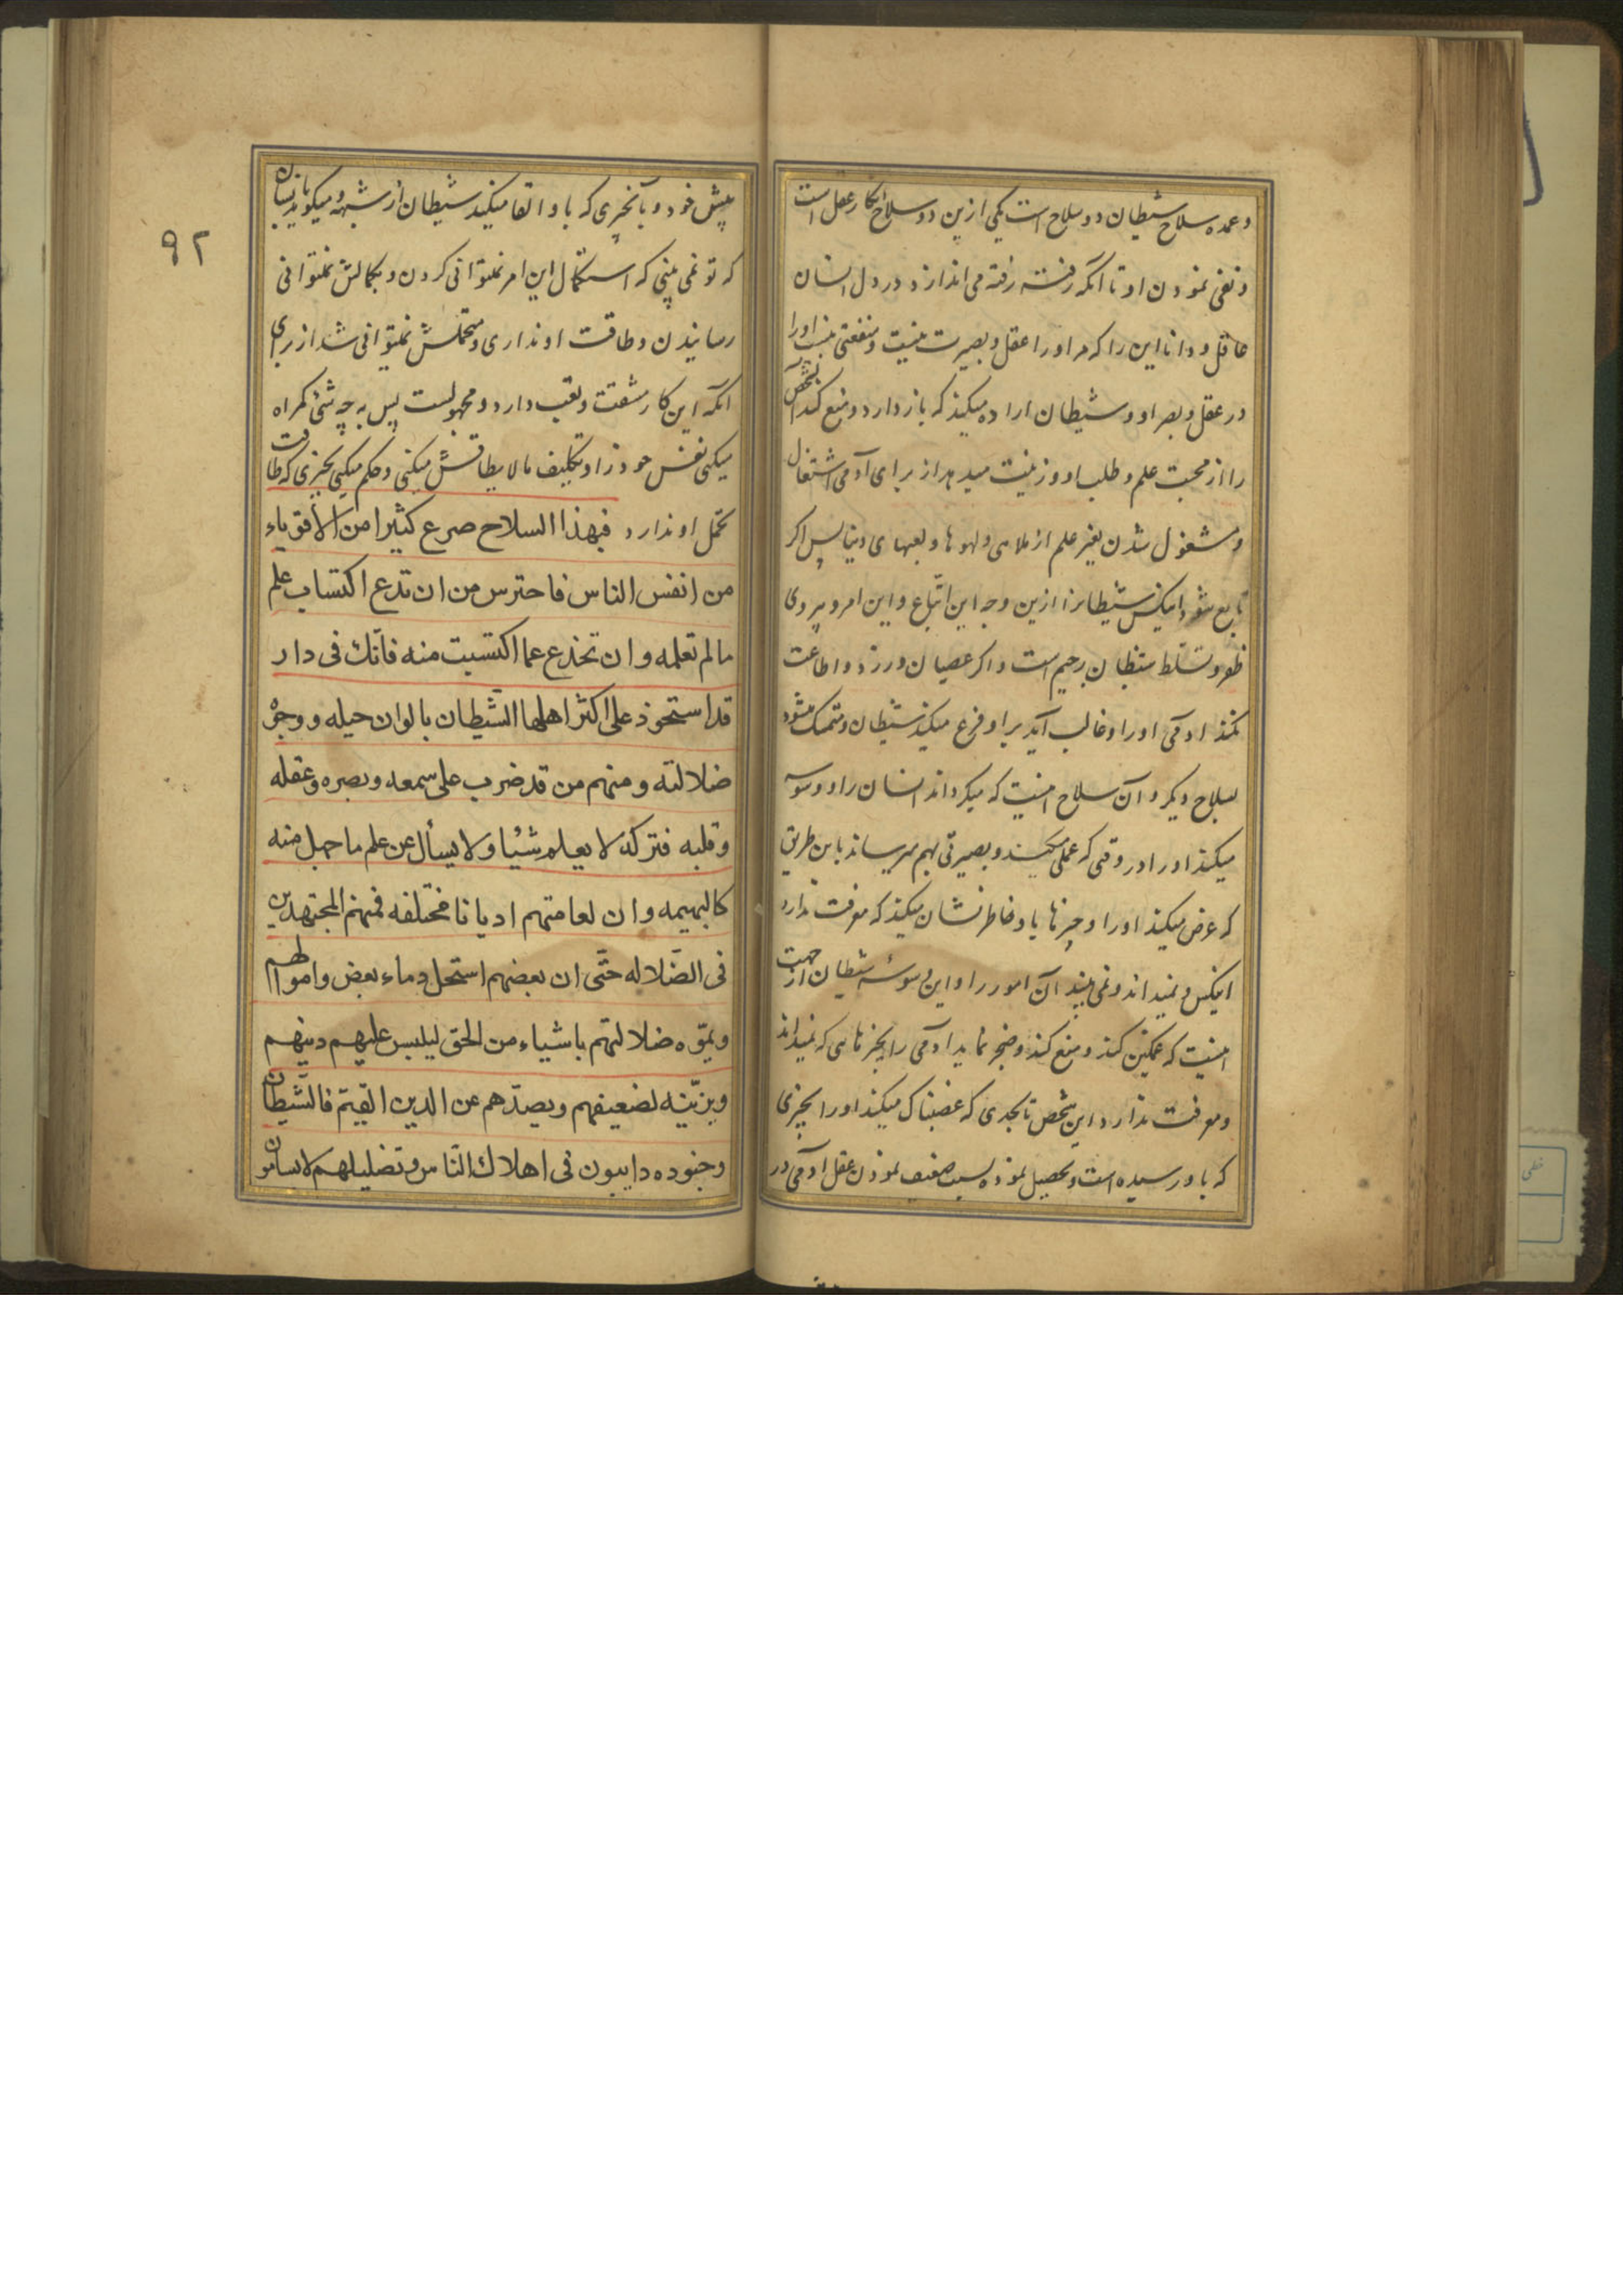 وعمده سلاح شیطان دو سلاح است یکی ازین دو سلاح انکار عقل است
و نفی نمودن او تا انکه رفته رفته می اندازد در دل انسان
عاقل و دانا این را که مر او را عقل و بصیرت نیست و منفعتی نیست او را
در عقل و بصر او و شیطان اراده میکند که باز دارد و منع کند آن شخص
را از محبت علم و طلب او و زینت میدهد از برای آدمی اشتغال
و مشغول شدن بغیر علم از ملاهی و لهوها و لعبهای دنیا پس اکر
تابع شود اینکس شیطانرا ازین وجه این اتباع و این امر و پیروی
ظفر و تسلط شیطان رجیم است و اکر عصیان ورزد و اطاعت
نکند ادمی او را و غالب آید بر او فزع میکند شیطان و متمسک میشود
بسلاح دیکر و آن سلاح اینست که میکرداند انسان را و وسوسه
میکند او را در وقتی که عملی میکند و بصیرتی بهم میرساند باین طریق
که عرض میکند او را و چیزها باو خاطر نشان میکند که معرفت ندارد
اینکس و نمیداند و نمی بیند آن امور را و این وسوسه شیطان از جهت
اینست که غمکین کند و منع کند و ضجر نماید ادمی را بچیزهایی که نمیداند
و معرفت ندارد این شخص تا بحدی که غضبناک میکند او را بچیزی
که باو رسیده است و تحصیل نموده بسبب ضعیف نمودن عقل ادمی در
۹۲
پیش خود و بآنچیزی که باو القا میکند شیطان از شبهه و میکوید بانسان
که تو نمی بینی که استکمال این امر نمیتوانی کردن و بکمالش نمیتوانی
رسانیدن و طاقت او نداری و متحملش نمیتوانی شد از برای
آنکه این کار مشقت و تعب دارد و مجهولست پس به چه شیٔ کمراه
میکنی نفس خود را و تکلیف مالا یطاقش میکنی و حکم میکنی بچیزی که طاقت
تحمل او ندارد فبهذا السلاح صرع کثیرا من الأقویاء
من انفس الناس فاحترس من ان تدع اکتساب علم
مالم تعلمه و ان تخدع عما اکتسبت منه فانّك فی دار
قد استحوذ علی اکثر اهلها الشّیطان بالوان حیله و وجوه
ضلالته و منهم من قد ضرب علی سمعه و بصره و عقله
و قلبه فترکه لا یعلم شیٔا و لا یسأل عن علم ما جهل منه
کالبهیمه و ان لعامتهم ادیانا مختلفه فمنهم المجتهدین
فی الضّلاله حتّی ان بعضهم استحل دماء بعض و اموالهم
و یموّه ضلالتهم باشیاء من الحق لیلبس علیهم دینهم
و یزیّنه لضعیفهم و یصدّهم عن الدین القیّم فالشّیطان
و جنوده دایبون فی اهلاك النّاس و تضلیلهم لا یسامون